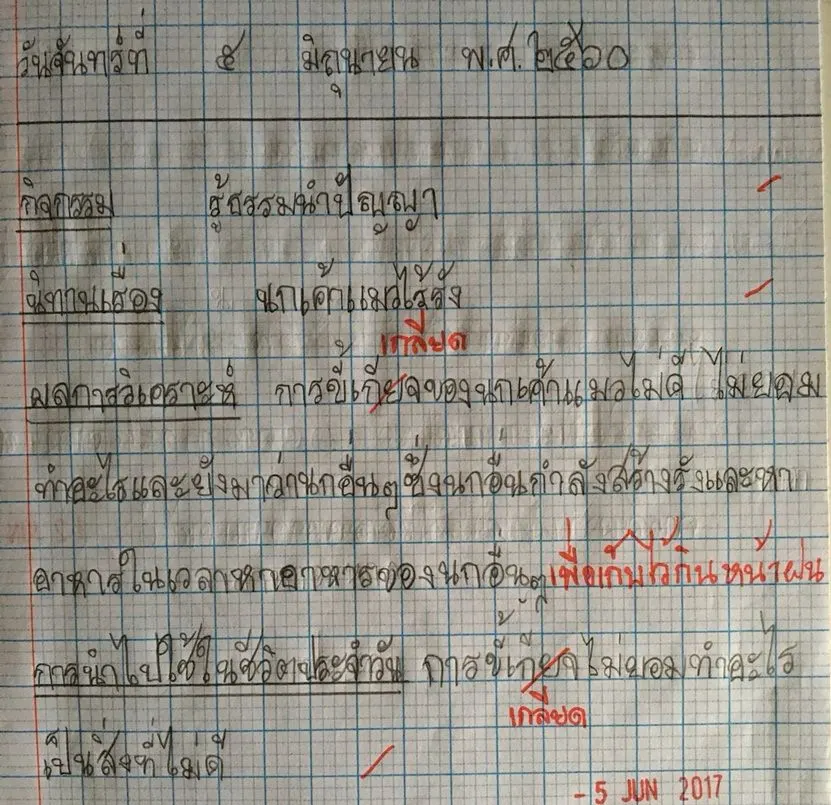 วันจันทร์ที่ ๕ มิถุนายน พ.ศ. ๒๕๖๐
กิจกรรม รู้ธรรมนำปัญญา
นิทานเรื่อง นกเค้าแมวไร้รัง
เกลียด
ผลการวิเคราะห์ การขี้เกียจของนกเค้าแมวไม่ดี ไม่ยอม
ทำอะไรและยังมาว่านกอื่นๆ ซึ่งนกอื่นกำลังสร้างรังและหา
อาหารในเวลาหาอาหารของนกอื่นๆ เพื่อเก็บไว้กินหน้าฝน
การนำไปใช้ในชีวิตประจำวัน การขี้เกียจไม่ยอมทำอะไร
เกลียด
เป็นสิ่งที่ไม่ดี
- 5 JUN 2017